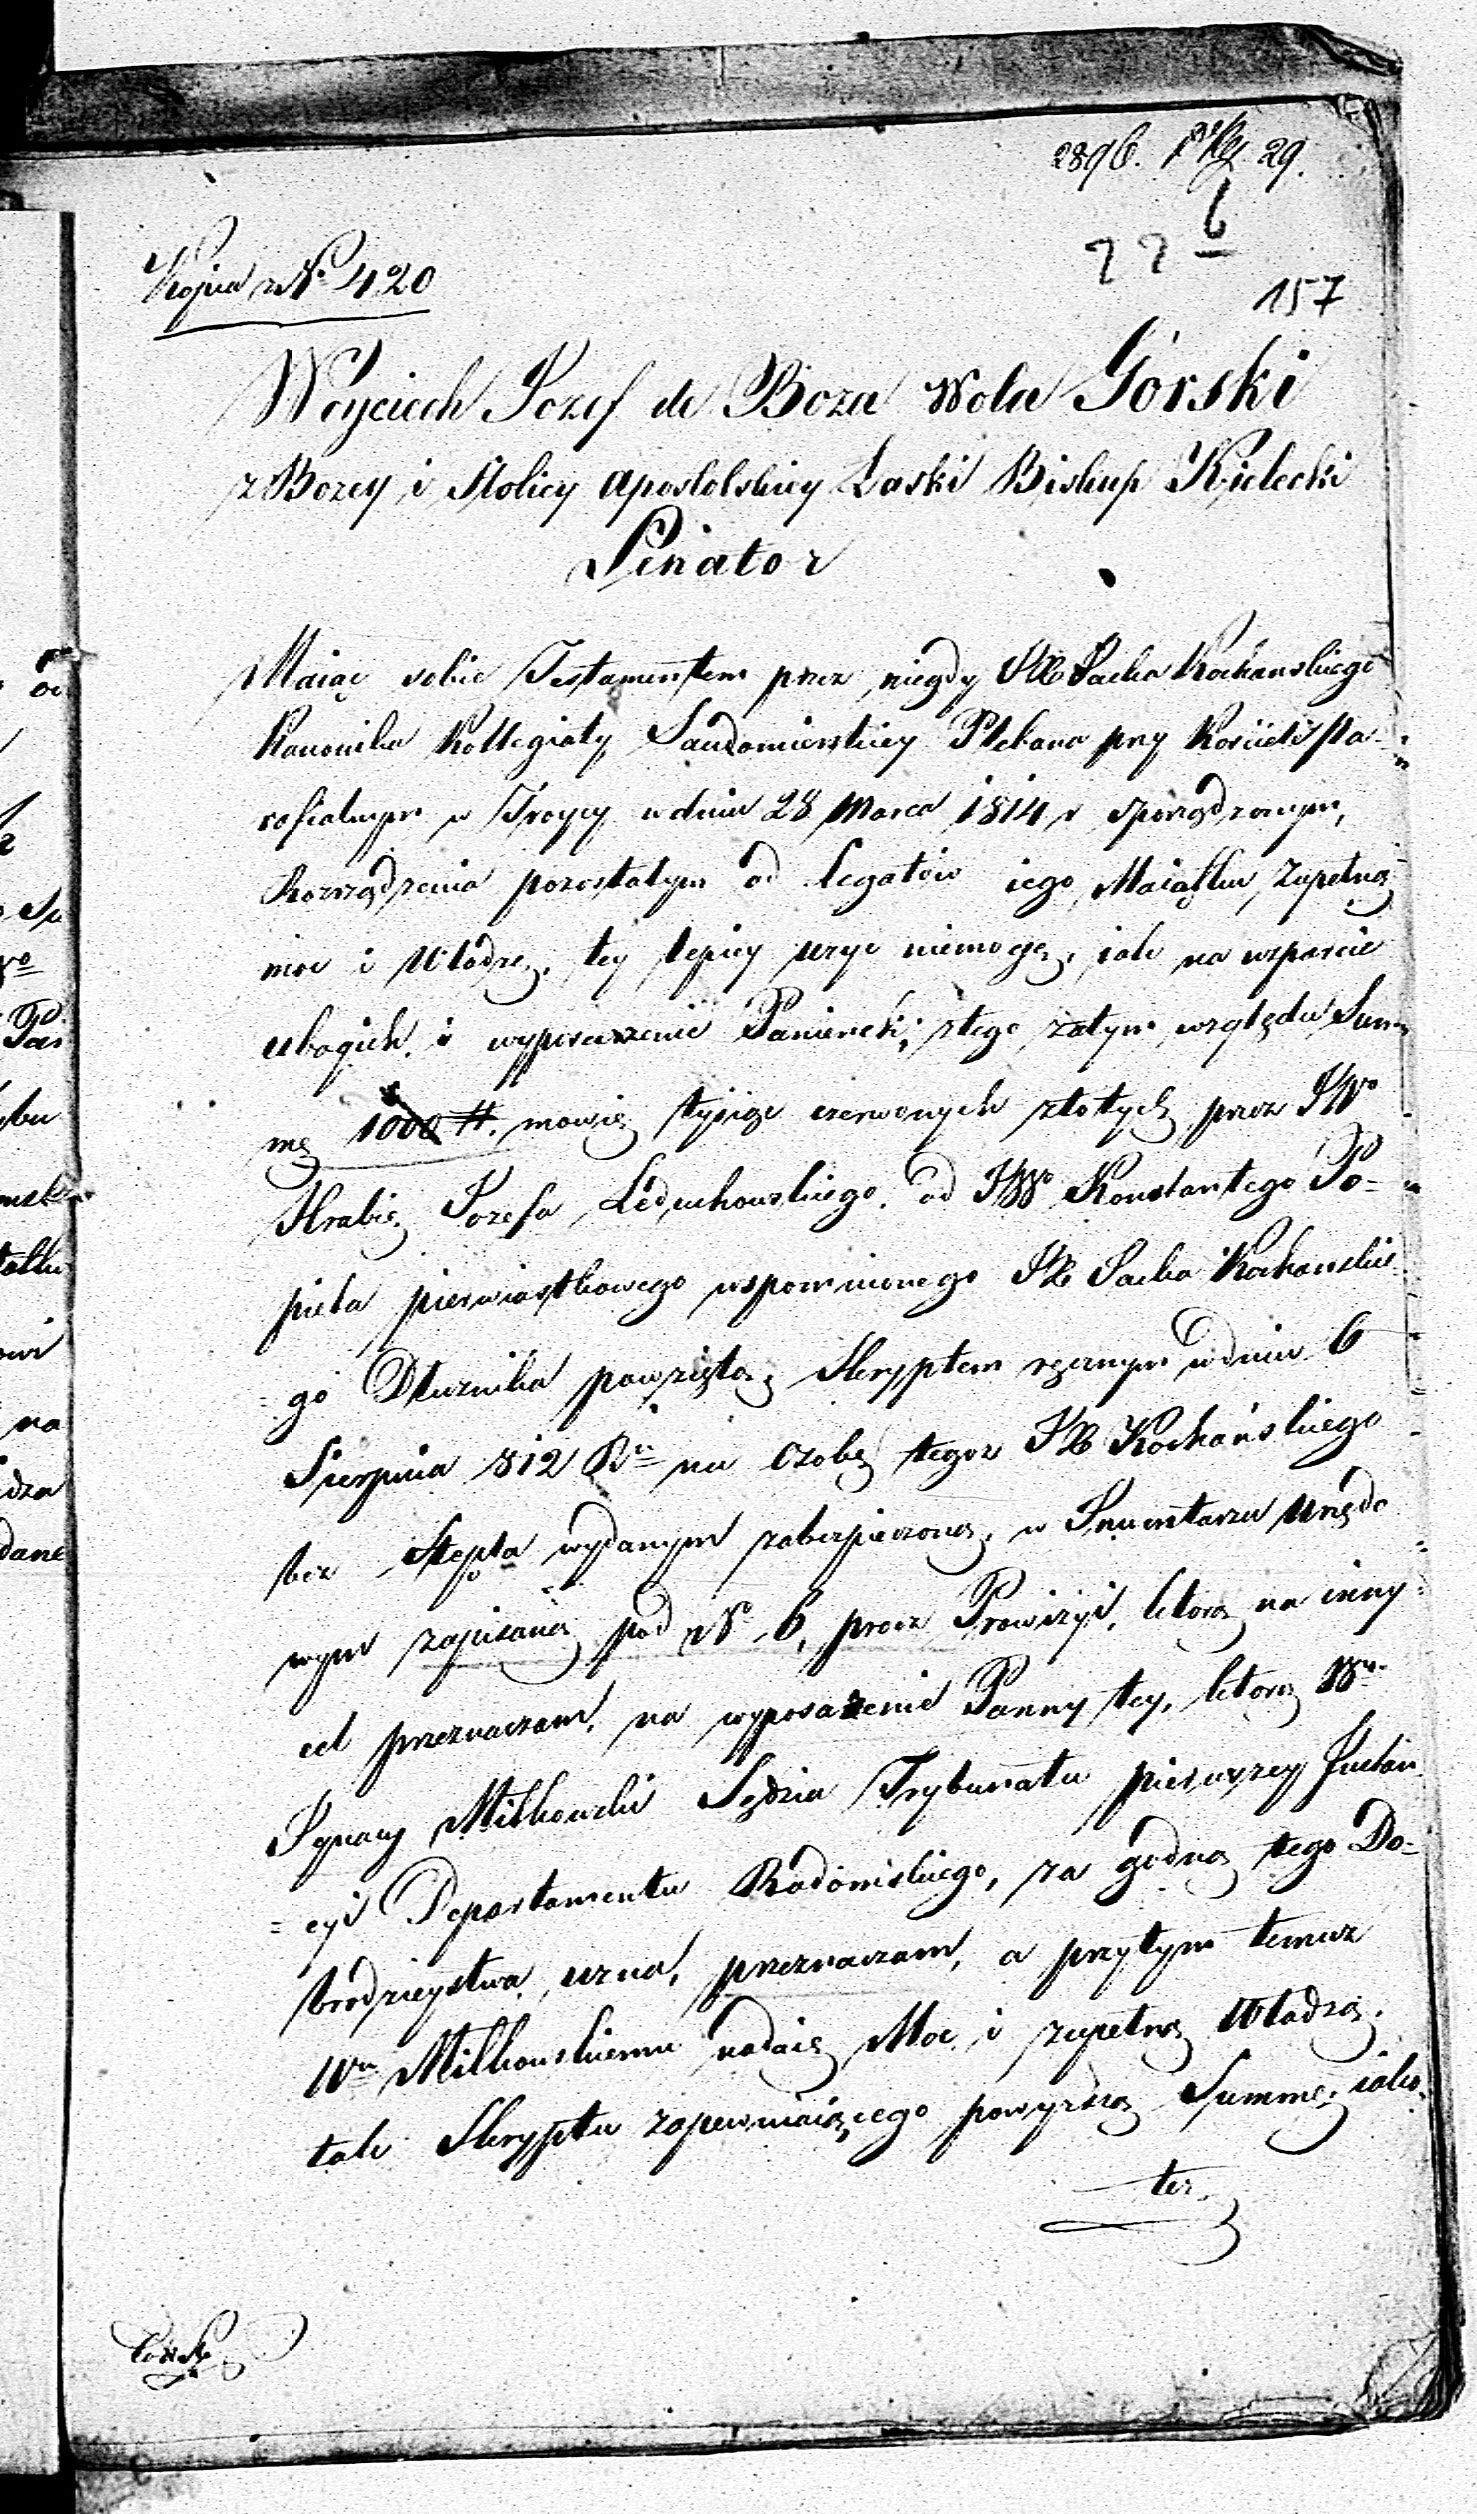 2896. 29.
6
157
Kopia N° 420
Woyciech Jozef de Boza Wola Górski
z Bozey i Stolicy Apostolskiey Łaski Biskup Kielecki
Senator
Maiąc sobie Testamentem przez niegdy JX Jacka Kochanskiego
Kanonika Kollegiaty Sandomierskiey Plebana przy Kościele Pa-
rofialnym w Troycy w dniu 28 Marca 1814 r sporządzonym,
Rozrządzenia pozostałym od Legatów iego Maiątku, zupełną
moc i Władzę, tey lepiey uzyc niemogę, iak na wsparcie
ubogich, i wyposazenie Panienek; z tego zatym względu Sum-
mę 1000 #. mowię tysiąc czerwonych złotych przez JWo
Hrabię Jozefa Leduchowskiego od JWo Konstantego Po-
piela pierwiastkowego wspomnionego JX Jacka Kochanskie-
go Dłuznika powziętą, Skryptem ręcznym w dniu 6
Sierpnia 812 Ru na Osobę tegoz JX Kochańskiego
bez Stępla wydanym zabezpieczoną, w Inwentarzu Urzędo
wym zapisaną pod N° 6, procz Prowizyi, ktorą na inny
cel przeznaczam, na wyposazenie Panny tey, ktorą Wn
Ignacy Miłkowski Sędzia Trybunału pierwszey Instan-
cyi Departamentu Radomskiego, za godną tego Do-
brodzieystwa uzna, przeznaczam, a przytym temuz
Wu Miłkowskiemu nadaię Moc i zupełną Władzę,
tak Skryptu zapewniaiącego powyzszą Summę, iako-
tez